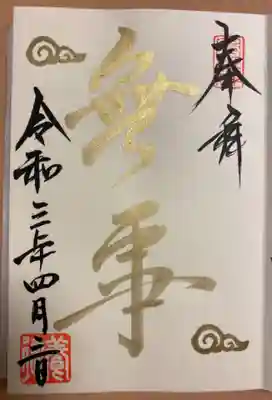 奉拝
無事
令和三年四月二日